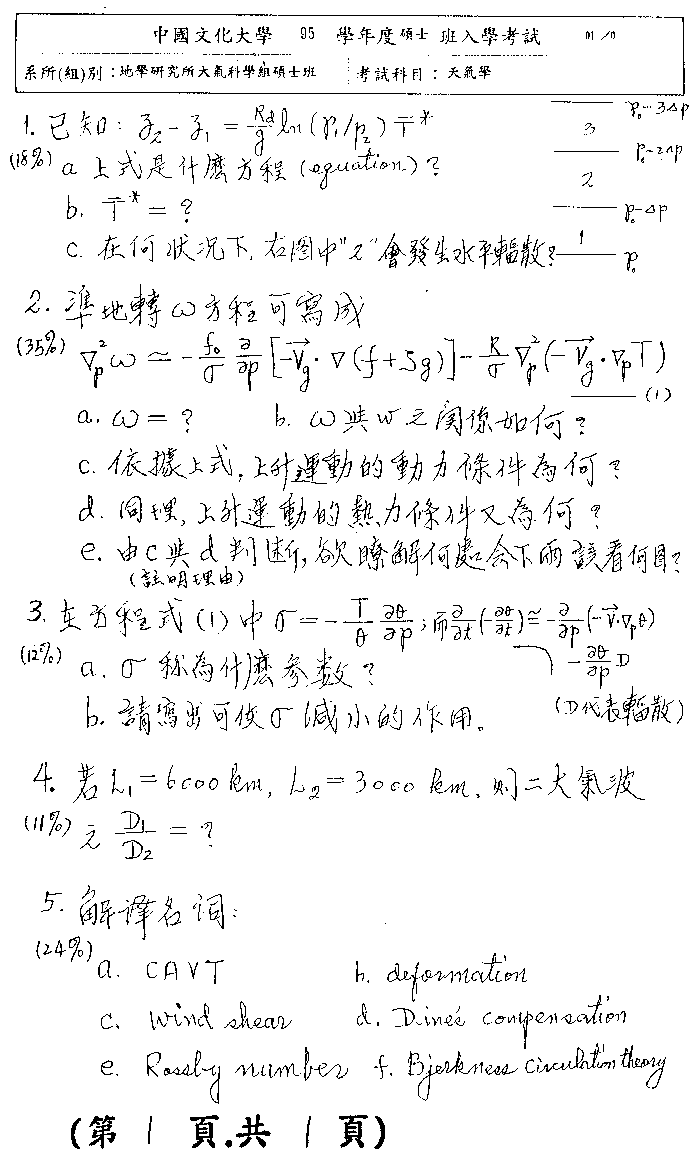 中國文化大學 95 學年度碩士 班入學考試 01/0
系所(組)別：地學研究所大氣科學組碩士班 考試科目：天氣學
1. 已知: z₂ - z₁ = R_d/g ln(p₁/p₂) T̅*
(18%) a 上式是什麼方程 (equation)?
b. T̅* = ?
c. 在何狀況下, 右圖中"2"會發生水平輻散?
p₀-3Δp
3
p₀-2Δp
2
p₀-Δp
1
p₀
2. 準地轉ω方程可寫成
(35%) ∇²_p ω ≃ - f₀/σ ∂/∂p [-V⃗_g · ∇(f+ζ_g)] - R/σ ∇²_p (-V⃗_g · ∇_p T)
(1)
a. ω = ? b. ω與w之關係如何?
c. 依據上式, 上升運動的動力條件為何?
d. 同理, 上升運動的熱力條件又為何?
e. 由c與d判斷, 欲瞭解何處會下雨該看何圖?
(說明理由)
3. 在方程式(1)中 σ = - T/θ ∂θ/∂p ; 而 ∂/∂t (-∂θ/∂t) ≅ - ∂/∂p (-V⃗·∇_p θ)
- ∂θ/∂p D
(12%) a. σ称為什麼參数?
(D代表輻散)
b. 請寫出可使σ減小的作用。
4. 若L₁ = 6000 km, L₂ = 3000 km, 則二大氣波
(11%) 之 D₁/D₂ = ?
5. 解譯名詞:
(24%)
a. CAVT b. deformation
c. Wind shear d. Dine's compensation
e. Rossby number f. Bjerkness circulation theory
(第 1 頁.共 1 頁)